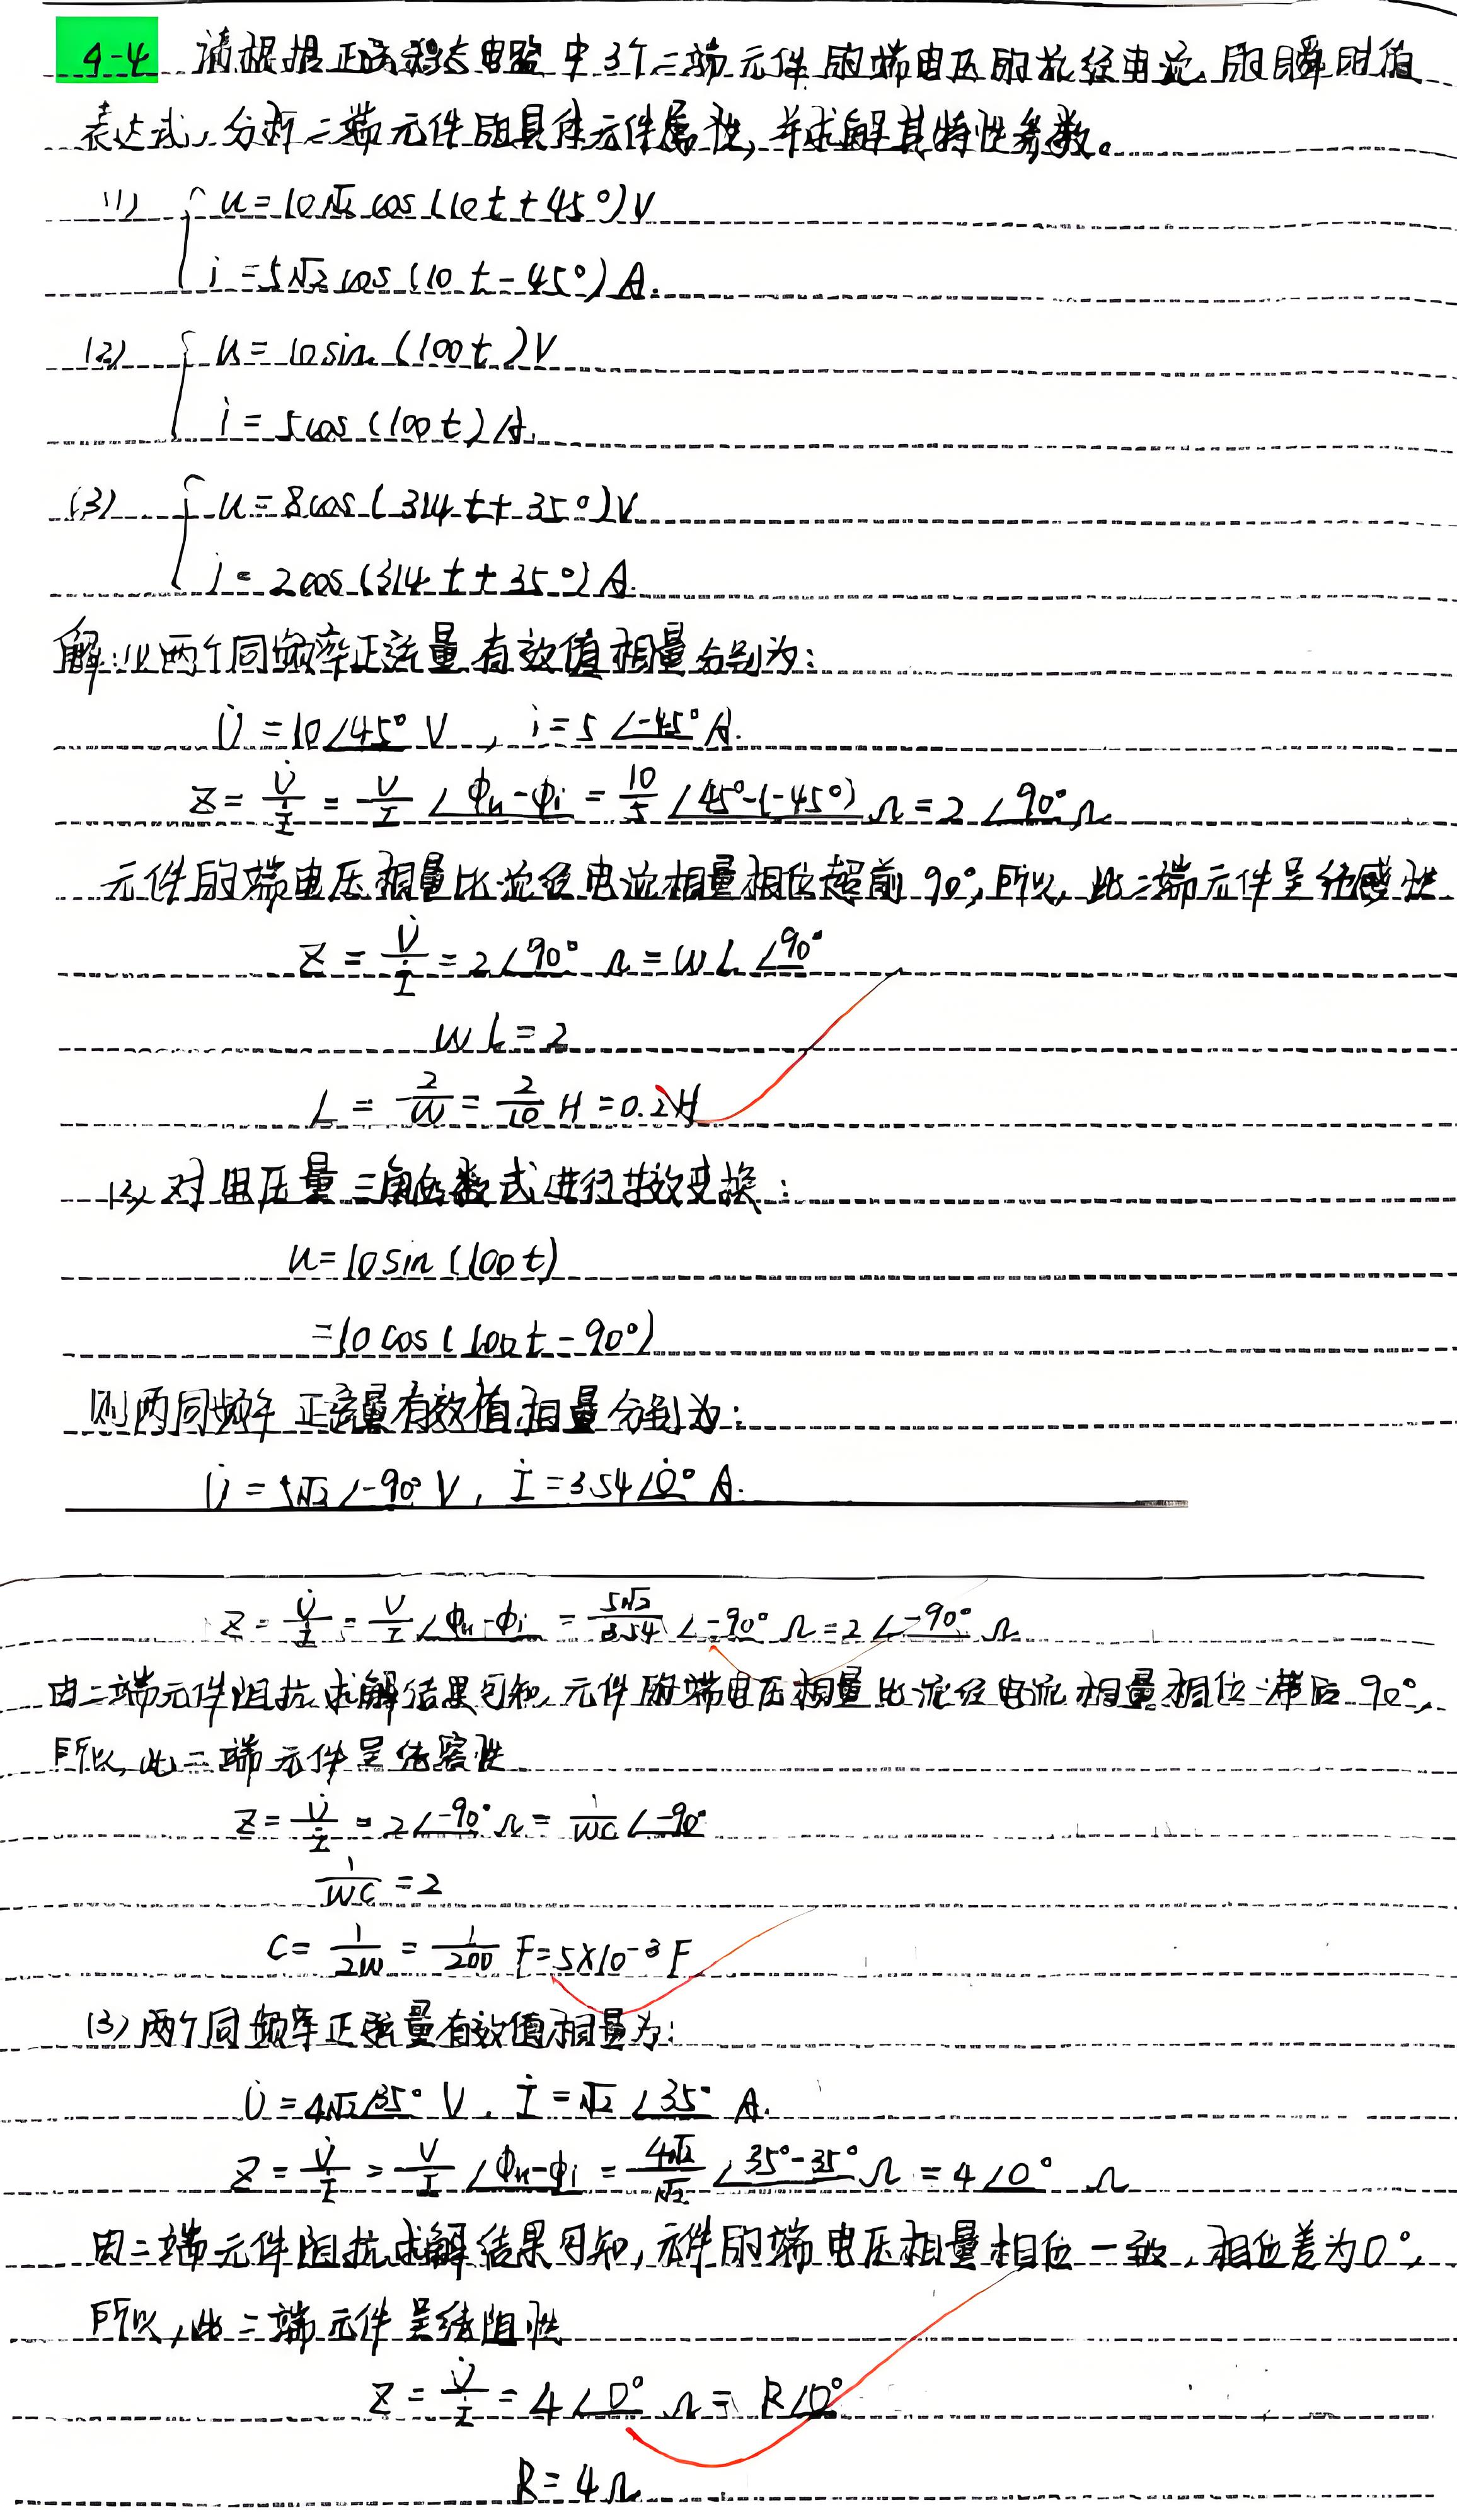 4-4 请根据正弦稳态电路中3个二端元件的端电压的流经电流的瞬时值
表达式,分析二端元件的具体元件属性,并求解其特性参数。
(1) u=10√2 cos(10t+45°)V
i=5√2 cos(10t-45°)A.
(2) u=10sin(100t)V
i=5cos(100t)A.
(3) u=8cos(314t+35°)V
i=2cos(314t+35°)A.
解:(1)两个同频率正弦量有效值相量分别为:
U̇=10∠45° V, i=5∠-45° A.
Z=U̇/İ=U/I∠φu-φi=10/5∠45°-(-45°)Ω=2∠90°Ω
元件的端电压相量比流经电流相量相位超前90°,所以,此二端元件呈纯感性
Z=U̇/İ=2∠90° Ω=WL∠90°
WL=2
L=2/W=2/10 H=0.2H
(2)对电压量三角函数式进行等效变换:
u=10sin(100t)
=10cos(100t-90°)
则两同频率正弦量有效值相量分别为:
U̇=5√2∠-90° V, İ=3.54∠0° A.
Z=U̇/İ=U/I∠φu-φi=5√2/3.54∠-90° Ω=2∠-90° Ω
由二端元件阻抗求解结果可知,元件的端电压相量比流经电流相量相位滞后90°,
所以,此二端元件呈纯容性.
Z=U̇/İ=2∠-90°Ω=1/WC∠-90°
1/WC=2
C=1/2W=1/200 F=5×10⁻³F
(3)两个同频率正弦量有效值相量为:
U̇=4√2∠35° V, İ=√2∠35° A.
Z=U̇/İ=U/I∠φu-φi=4√2/√2∠35°-35°Ω=4∠0° Ω
由二端元件阻抗求解结果可知,元件的端电压相量相位一致,相位差为0°,
所以,此二端元件呈纯阻性
Z=U̇/İ=4∠0° Ω=R∠0°
R=4Ω